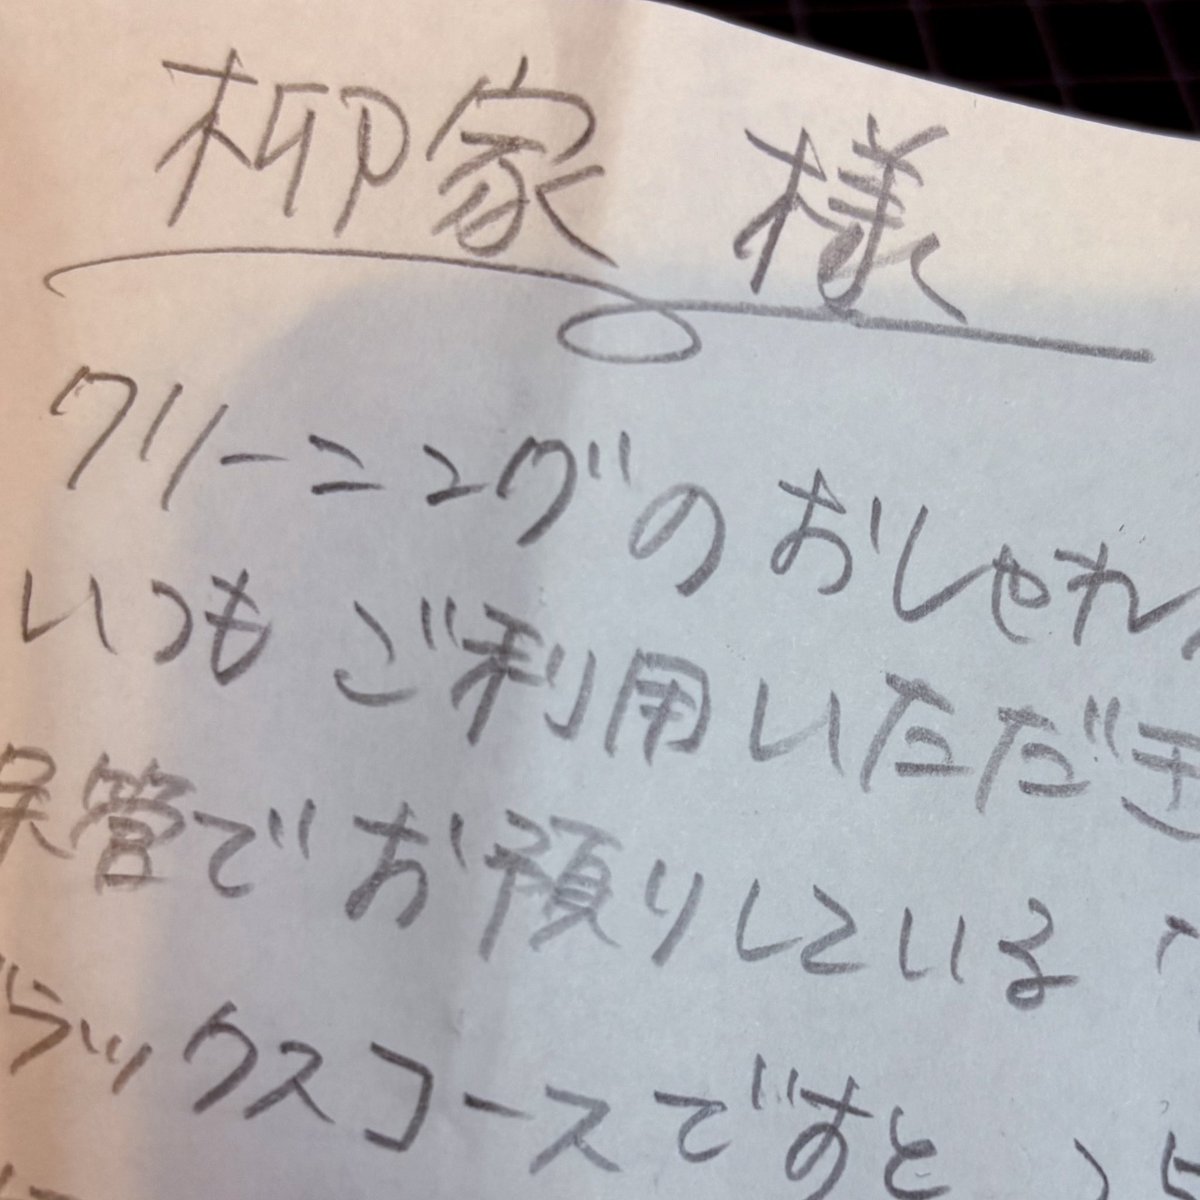 柳家 様
クリーニングのおしゃれ
いつもご利用いただき
保管でお預りしている
ラックスコースですと、